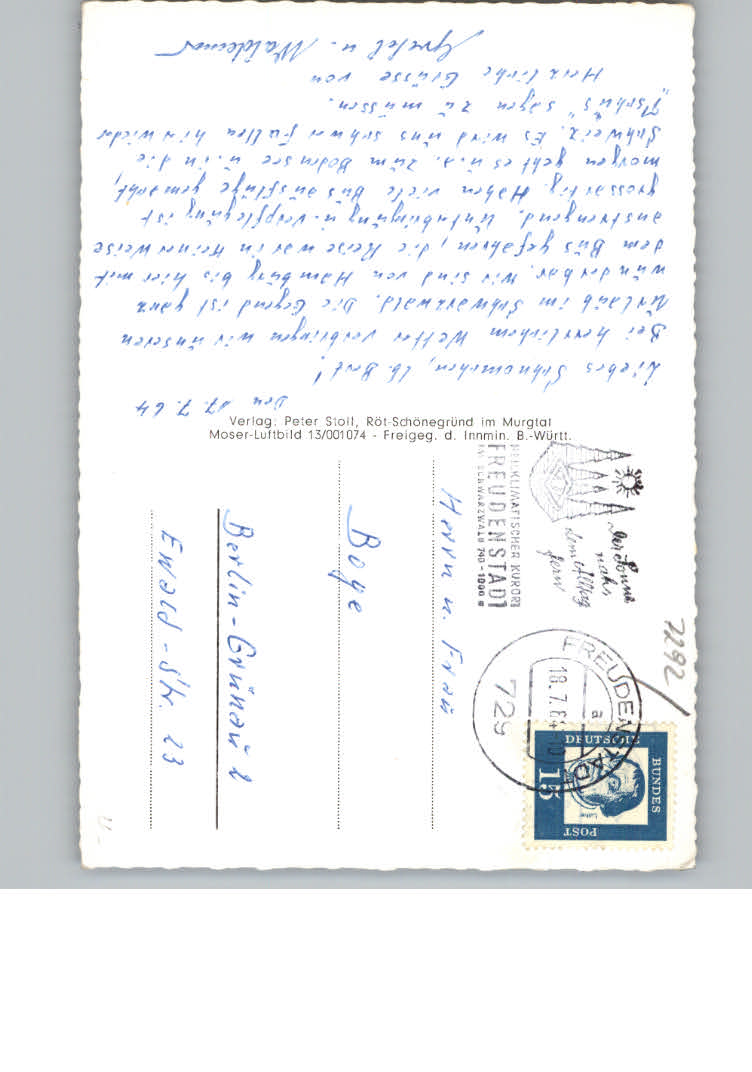 Den 17.7.64
Liebes Schnömchen, lb. Bert!
Bei herrlichem Wetter verbringen wir unseren
Urlaub im Schwarzwald. Die Gegend ist ganz
wunderbar. Wir sind von Hamburg bis hier mit
dem Bus gefahren, die Reise war in keiner Weise
anstrengend. Unterbringung u. Verpflegung ist
grossartig. Haben viele Busausflüge gemacht,
morgen geht es u.a. zum Bodensee u. in die
Schweiz. Es wird uns schwer fallen hier wieder
"Tschüs" sagen zu müssen.
Herzliche Grüsse von
Gretel u. Waldemar
Verlag: Peter Stoll, Röt-Schönegründ im Murgtal
Moser-Luftbild 13/001074 - Freigeg. d. Innmin. B.-Württ.
Der Sonne
nahe
dem Alltag
fern
HEILKLIMATISCHER KURORT
FREUDENSTADT
IM SCHWARZWALD 740-1000 m
FREUDENSTADT
18.7.64-10
a
729
7292
DEUTSCHE
BUNDES
POST
15
Luther
Herrn u. Frau
Boye
Berlin-Grünau 2
Ewald-Str. 23